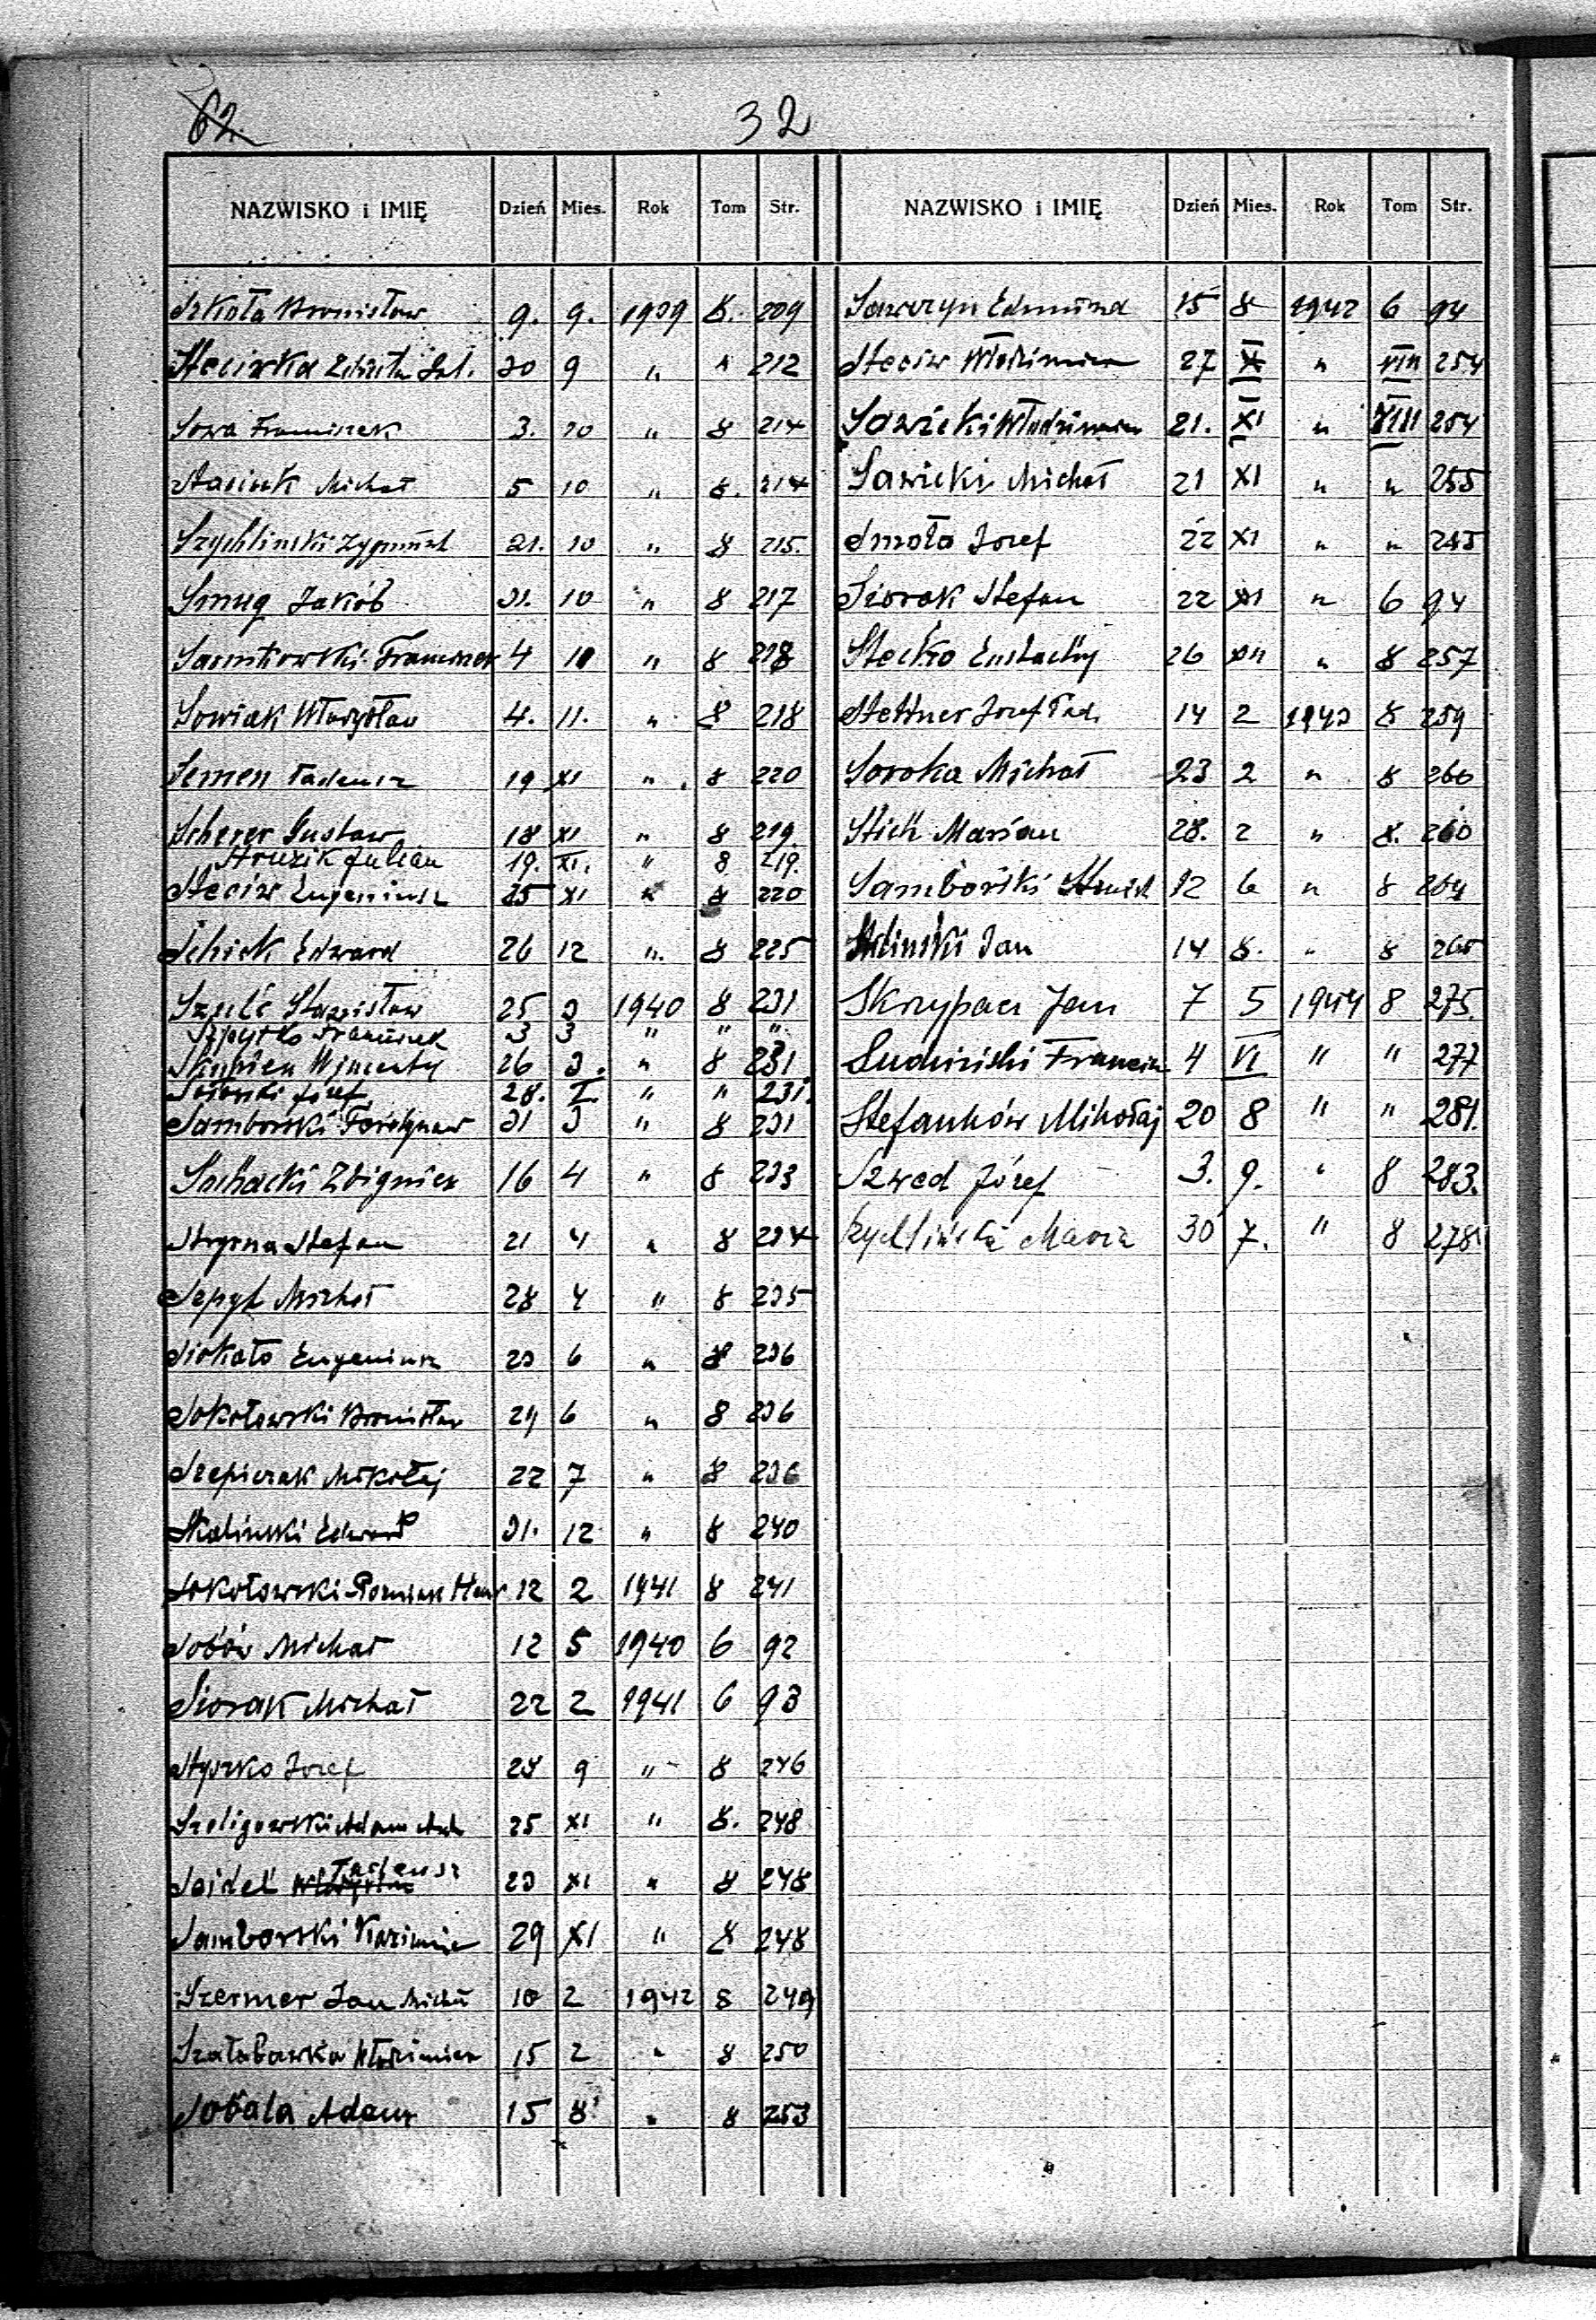 62 32
NAZWISKO i IMIĘ Dzień Mies. Rok Tom Str.
Szkoła Bronisław 9. 9. 1939 8. 209
Steciwka Elżbieta 30 9 " " 212
Sowa Franciszek 3. 10 " 8 214
Stasiuk Michał 5 10 " 8. 214
Szychliński Zygmunt 21. 10 " 8 215.
Smug Jakób 31. 10 " 8 217
Franciszek 4 " 8 218
Sowiak Władysław 4. 11. " 8 218
Semen Tadeusz 19 XI " 8 220
Scherer Gustaw 18 XI " 8 219.
Struzik Julian 19. XI. " 8 219.
Steciw Eugeniusz 25 XI " 8 220
Schick Edward 26 12 " 8 225
Szulc Stanisław 25 3 1940 8 231
Szpytko Franciszek 3 3 " " "
Skupień Wincenty 26 3. " 8 231
Józef 28. I. " " 231.
Samborski Ferdynand 31 3 " 8 231
Suchacki Zbigniew 16 4 " 8 233
Stefan 21 4 " 8 234
Sepyk Michał 28 4 " 8 235
Siokało Eugeniusz 23 6 " 8 236
Sokołowski Bronisław 24 6 " 8 236
Szepiczak Mikołaj 22 7 " 8 236
Skaliński Edward 31. 12 " 8 240
Sokołowski 12 2 1941 8 241
Sobów Michał 12 5 1940 6 92
Siorak Michał 22 2 1941 6 93
Styszko Józef 28 9 " 8 246
Szeligowski Adam 25 XI " 8. 248
Seidel Tadeusz 23 XI " 8 248
Samborski Kazimierz 29 XI " 8 248
Szermer Jan Michał 10 2 1942 8 249
Szałabawka Włodzimierz 15 2 " 8 250
Sobala Adam 15 8 " 8 253
NAZWISKO i IMIĘ Dzień Mies. Rok Tom Str.
Sawczyn Edmund 15 8 1942 6 94
Steciw Włodzimierz 27 X " VIII 254
Sawicki Włodzimierz 21. XI " VIII 254
Sawicki Michał 21 XI " " 255
Smoła Józef 22 XI " " 255
Siorak Stefan 22 XI " 6 94
Stećko Eustachy 26 XII " 8 257
Stettner Józef Tad. 14 2 1943 8 259
Soroka Michał 23 2 " 8 260
Stich Marian 28. 2 " 8. 260
Samborski 12 6 " 8 264
Jan 14 8. " 8 265
Skrzypacz Jan 7 5 1944 8 275.
Franciszek 4 VI " " 277
Stefanków Mikołaj 20 8 " " 281.
Szwed Józef 3. 9. " 8 283.
Szychlińska Maria 30 7. " 8 278